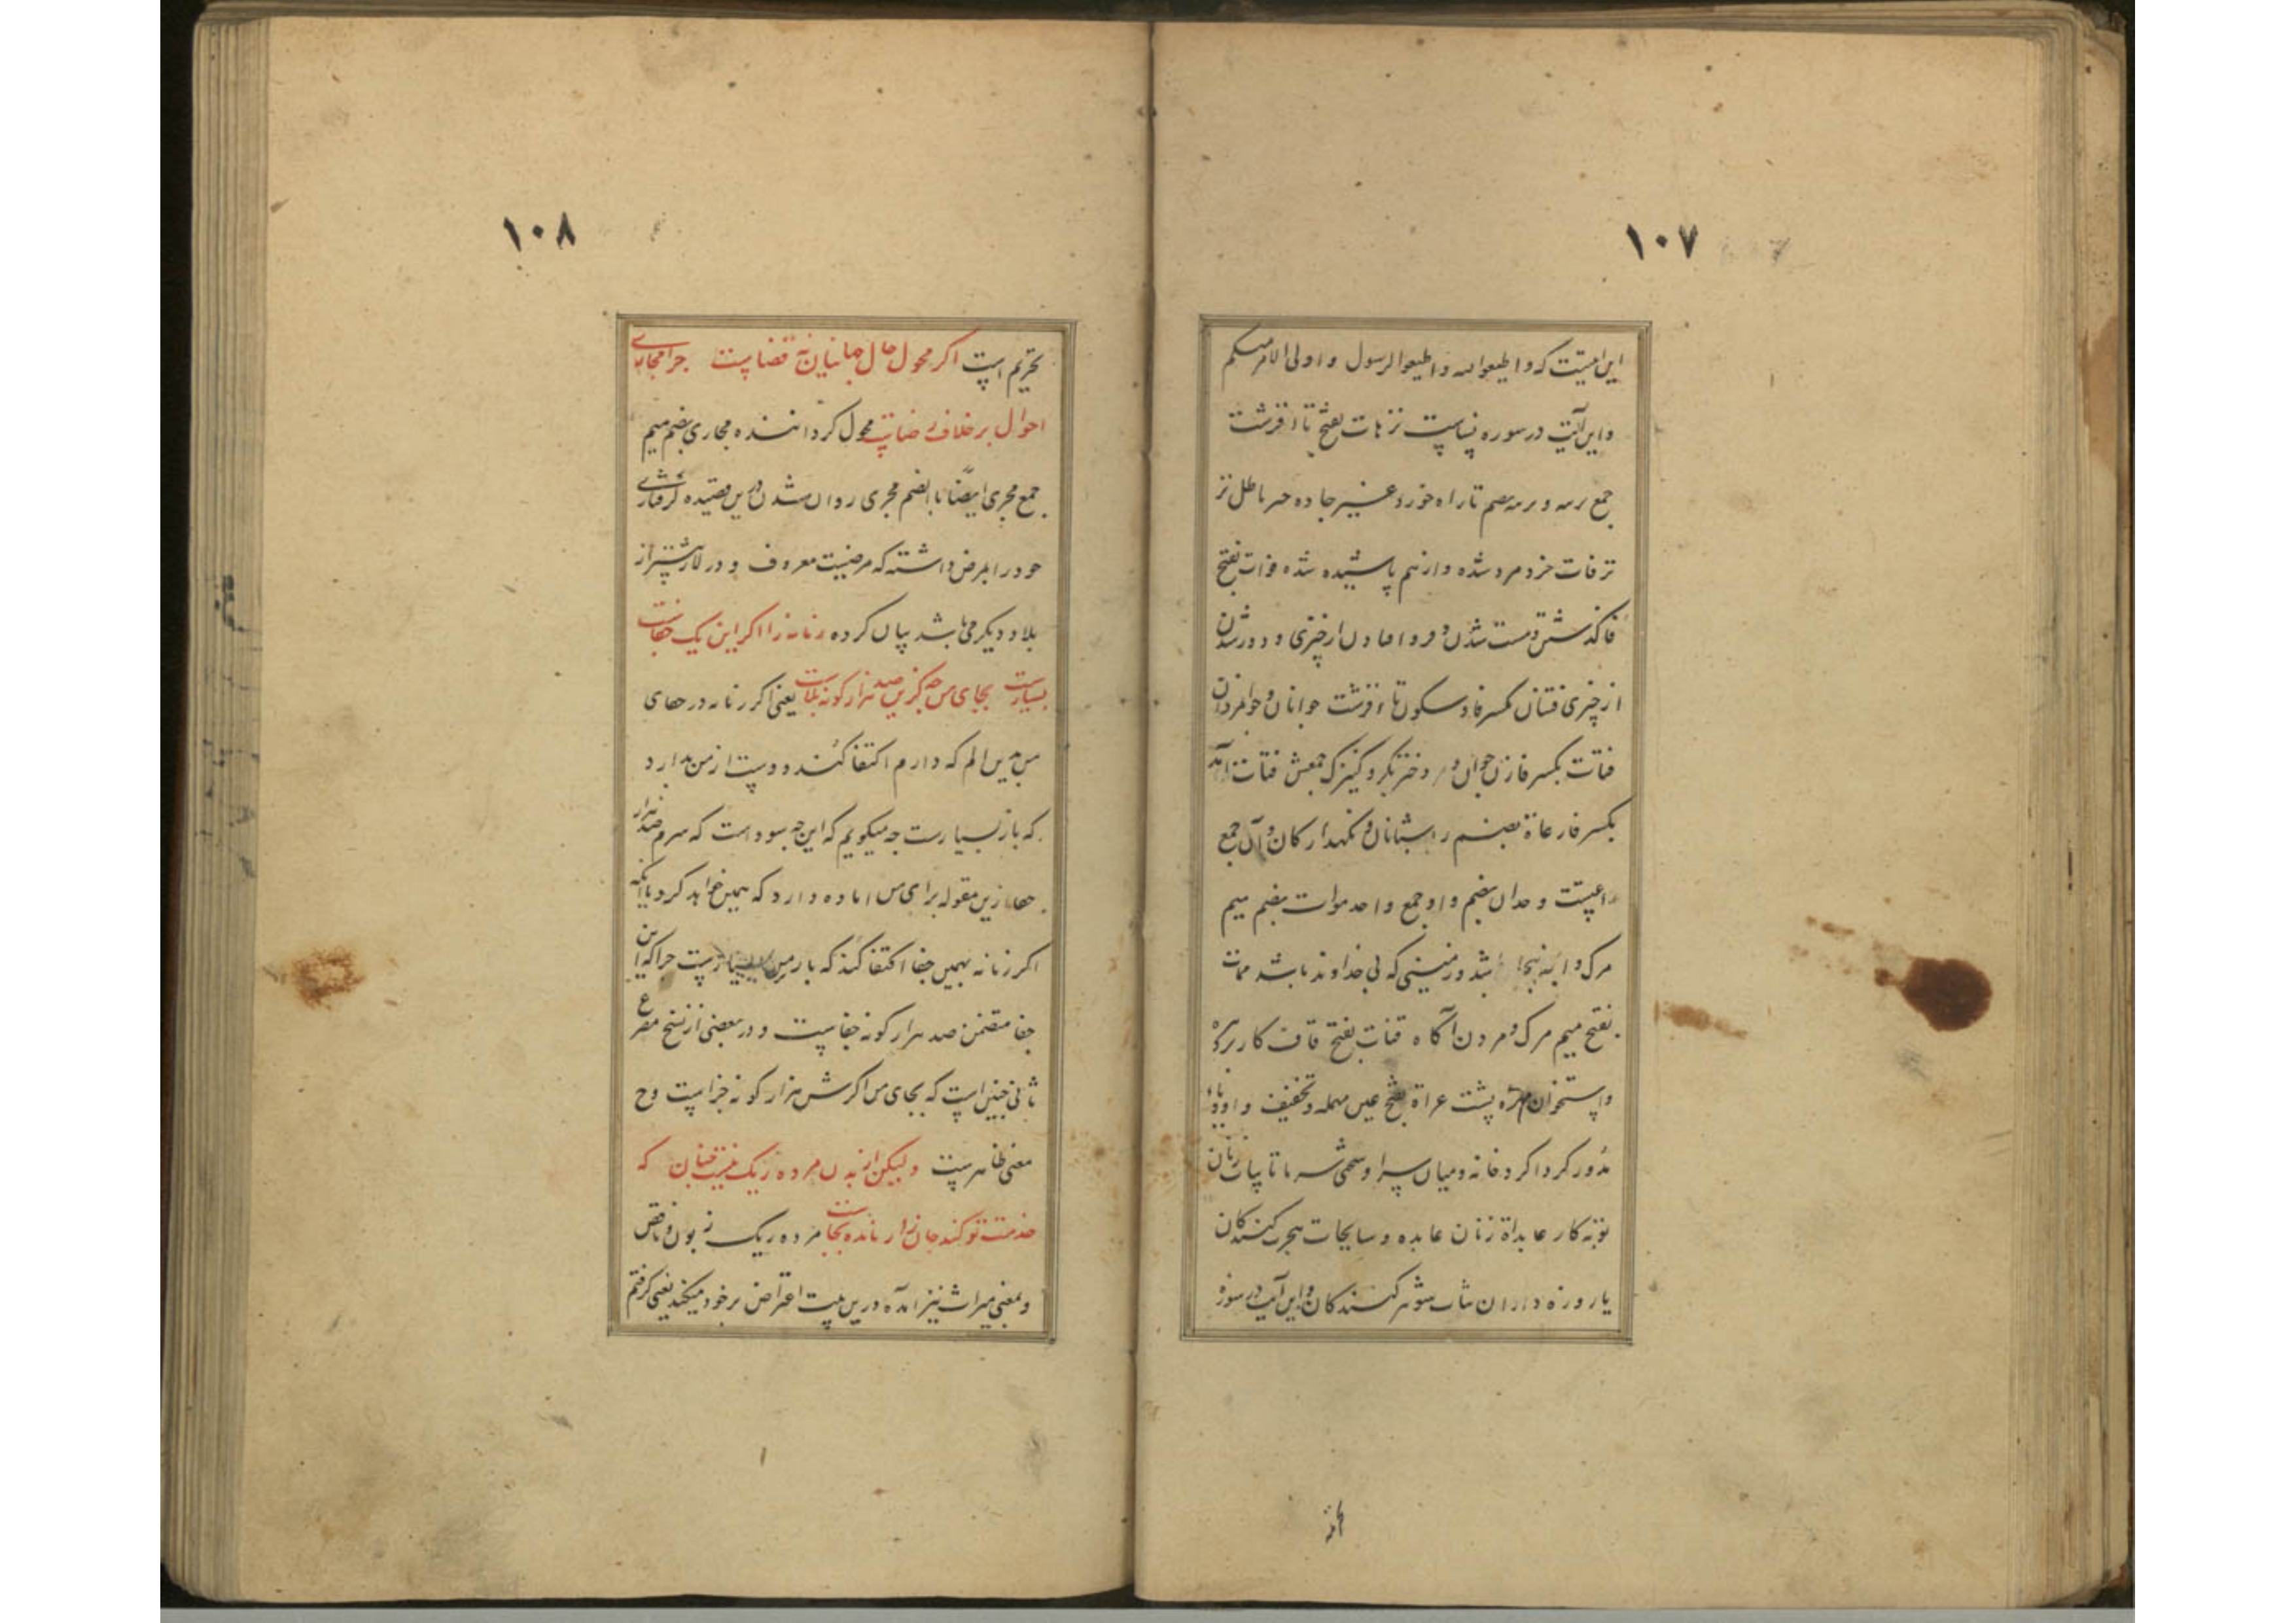 ۱۰۷
این است که و اطیعوا الله و اطیعوا الرسول و اولی الامر منکم
و این آیت در سوره نساست ترهات بضم تا و فرشت
جمع ترهه و ترهه بضم تا راه خورد غیر جاده هر باطل تر
ترفات خرد مرد شده و از هم پاشیده شده فوات بفتح
فا گذشتن و مست شدن و فرو افتادن از چیزی و دور شدن
از چیزی فتیان بکسر فا و سکون تا قرشت جوانان و جوانمردان
فتات بکسر فا زن جوان و دختر بکر و کنیزک جمعش فتات آمد
بکسر فا رعاة بضم را شبانان و نگهدارکان و آن جمع
داعیست وحدان بضم واو جمع واحد موات بضم میم
مرک و آنچه بیجان باشد و زمینی که بی خداوند باشد ممات
بفتح میم مرک و مردن آگاه قنات بفتح قاف کاریز
و استخوان مهره پشت عراة بفتح عین مهمله و تخفیف واو
مدور کرداکرد خانه و میان سرا و سختی سرما تایبات زنان
توبه کار عابداة زنان عابده و سایحات هجرت کنندکان
یا روزه داران ثیبات شوهر کنندکان و این آیت در سوره
۱۰۸
تحریم است اکر محول حال جهانیان نه قضاست چرا مجاری
احوال برخلاف رضاست محول کرداننده مجاری بضم میم
جمع مجری ایضا بالضم مجری روان شدن درین قصیده گرفتاری
خود را بمرض داشته که مرضیست معروف و در لار بیشتر از
بلاد دیگر می باشد بیان کرده زمانه را اکر این یک جفاست
بسیارست بجای من چه کزین صد هزار کونه بلاست یعنی اکر زمانه در جفای
من بدین الم که دارم اکتفا کند و دست از من بدارد
که باز بسیارست چه میکویم که این چه سودست که سرم صد هزار
جفا ازین مقوله برای من آماده دارد که همین خواهد کرد یا آنکه
اکر زمانه بهمین جفا اکتفا کند که بار من بسیارست چرا که این
جفا متضمن صد هزار کونه جفاست و در بعضی از نسخ مصرع
ثانی چنین است که بجای من اکرش هزار کونه جزاست وح
معنی ظاهرست ولیکن از بدن مرده ریک که
خدمت تو کند جان نارمانده بجاست مرده ریک زبون و ناقص
و بمعنی میراث نیز آمده درین بیت اعتراض بر خود میکند یعنی کرفتم